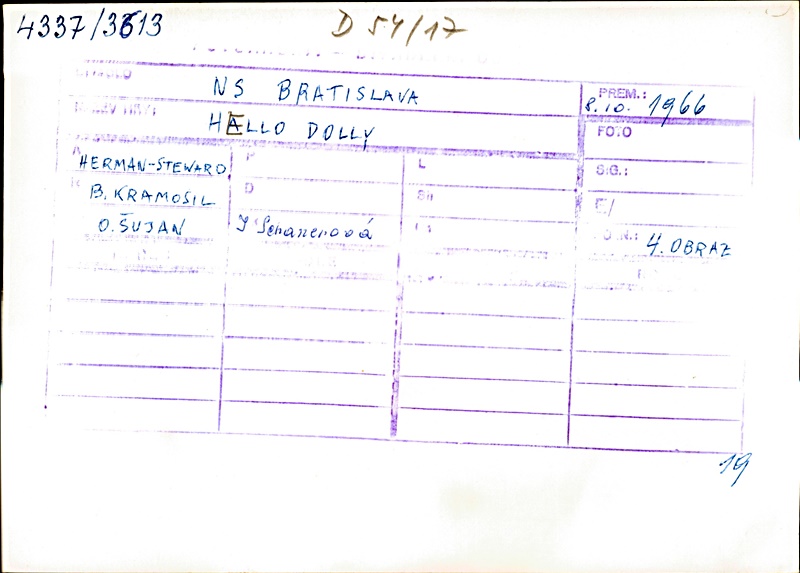 4337/3613 D 54/17
NS BRATISLAVA PREM.: 8.10. 1966
HALLO DOLLY FOTO
HERMAN-STEWARD P L SIG.:
B. KRAMOSIL D Sn Č/
O. ŠUJAN 4. OBRAZ
19